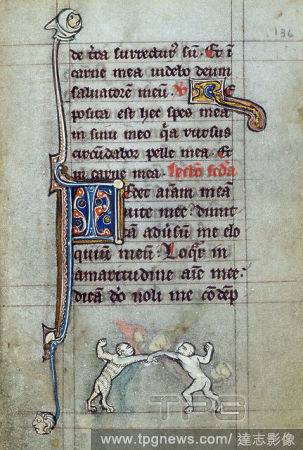 136
de tra surrectur' sū. Et ī
carne mea uidebo deum
saluatorem meū. V Re
posita est hec spes mea
in sinu meo qa rursus
circūdabor pelle mea. Et
in carne mea. Lectio scda
Tedet aīam meā
uite mee dimit
tā aduersū me elo
quium meū. Loqr in
amaritudine aīe mee
dicā dō noli me condēp
TPG
www.tpgnews.com/達志影像